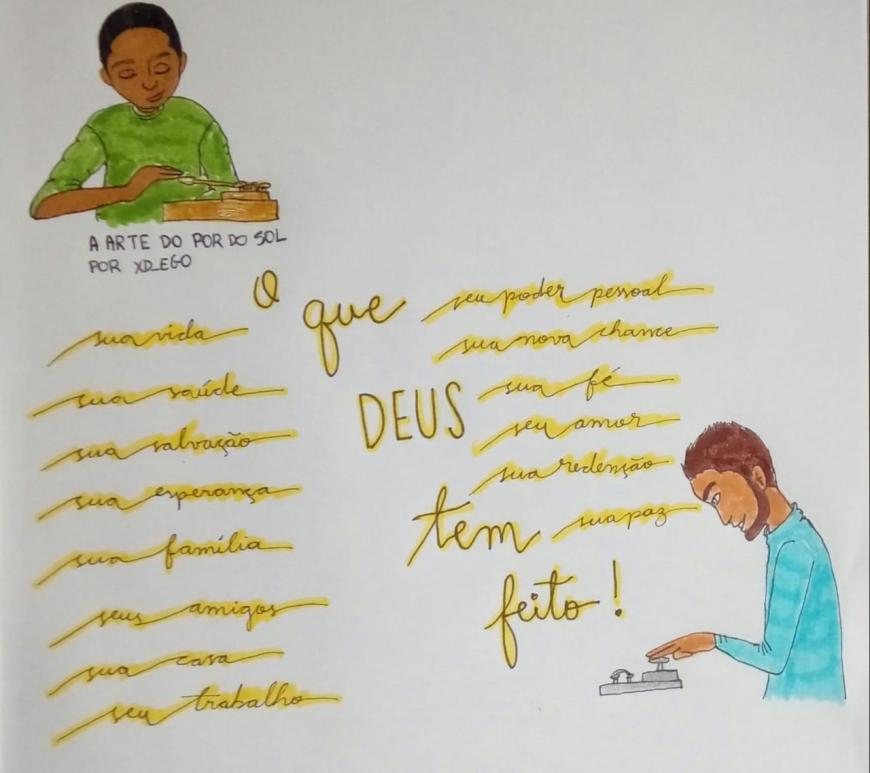 A ARTE DO POR DO SOL
POR XD_EGO
O que
DEUS
tem
feito!
sua vida
sua saúde
sua salvação
sua esperança
sua família
seus amigos
sua casa
seu trabalho
seu poder pessoal
sua nova chance
sua fé
seu amor
sua redenção
sua paz